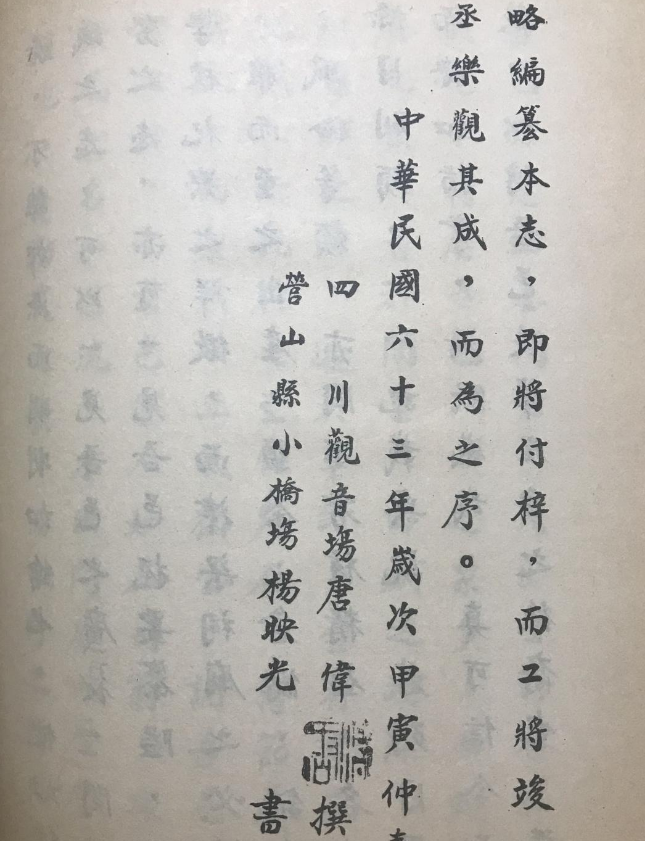 略編纂本志，即將付梓，而工將竣
丞樂觀其成，而為之序。
中華民國六十三年歲次甲寅仲
四川觀音塲唐偉撰
營山縣小橋塲楊映光書